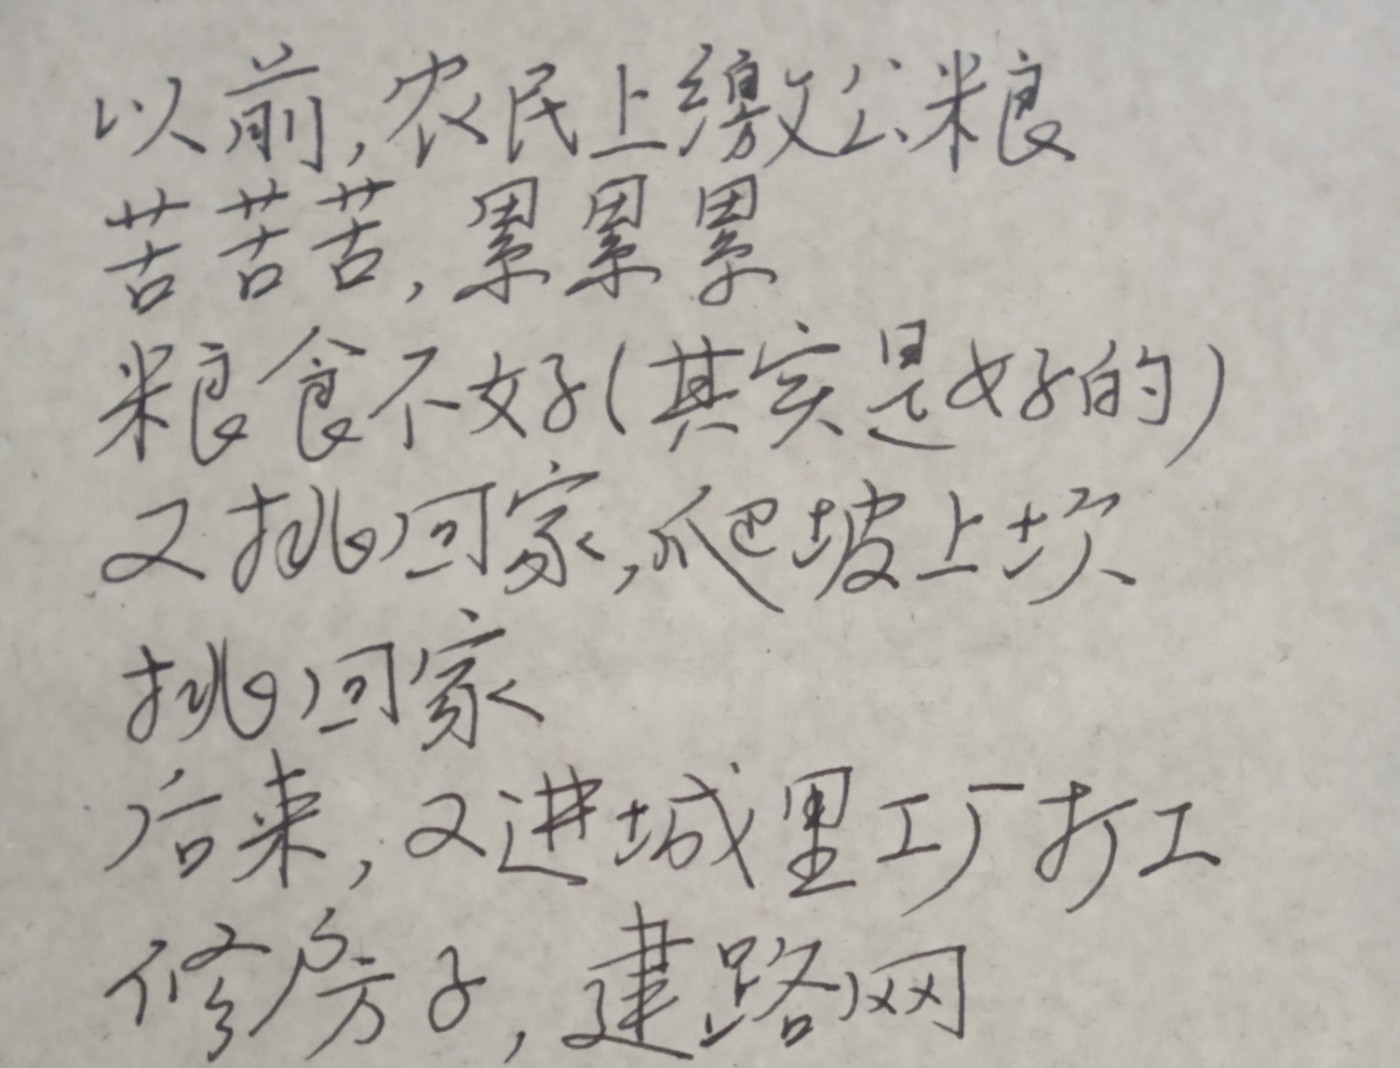 以前,农民上缴公粮
苦苦苦,累累累
粮食不好(其实是好的)
又挑回家,爬坡上坎
挑回家
后来,又进城里工厂打工
修房子,建路网